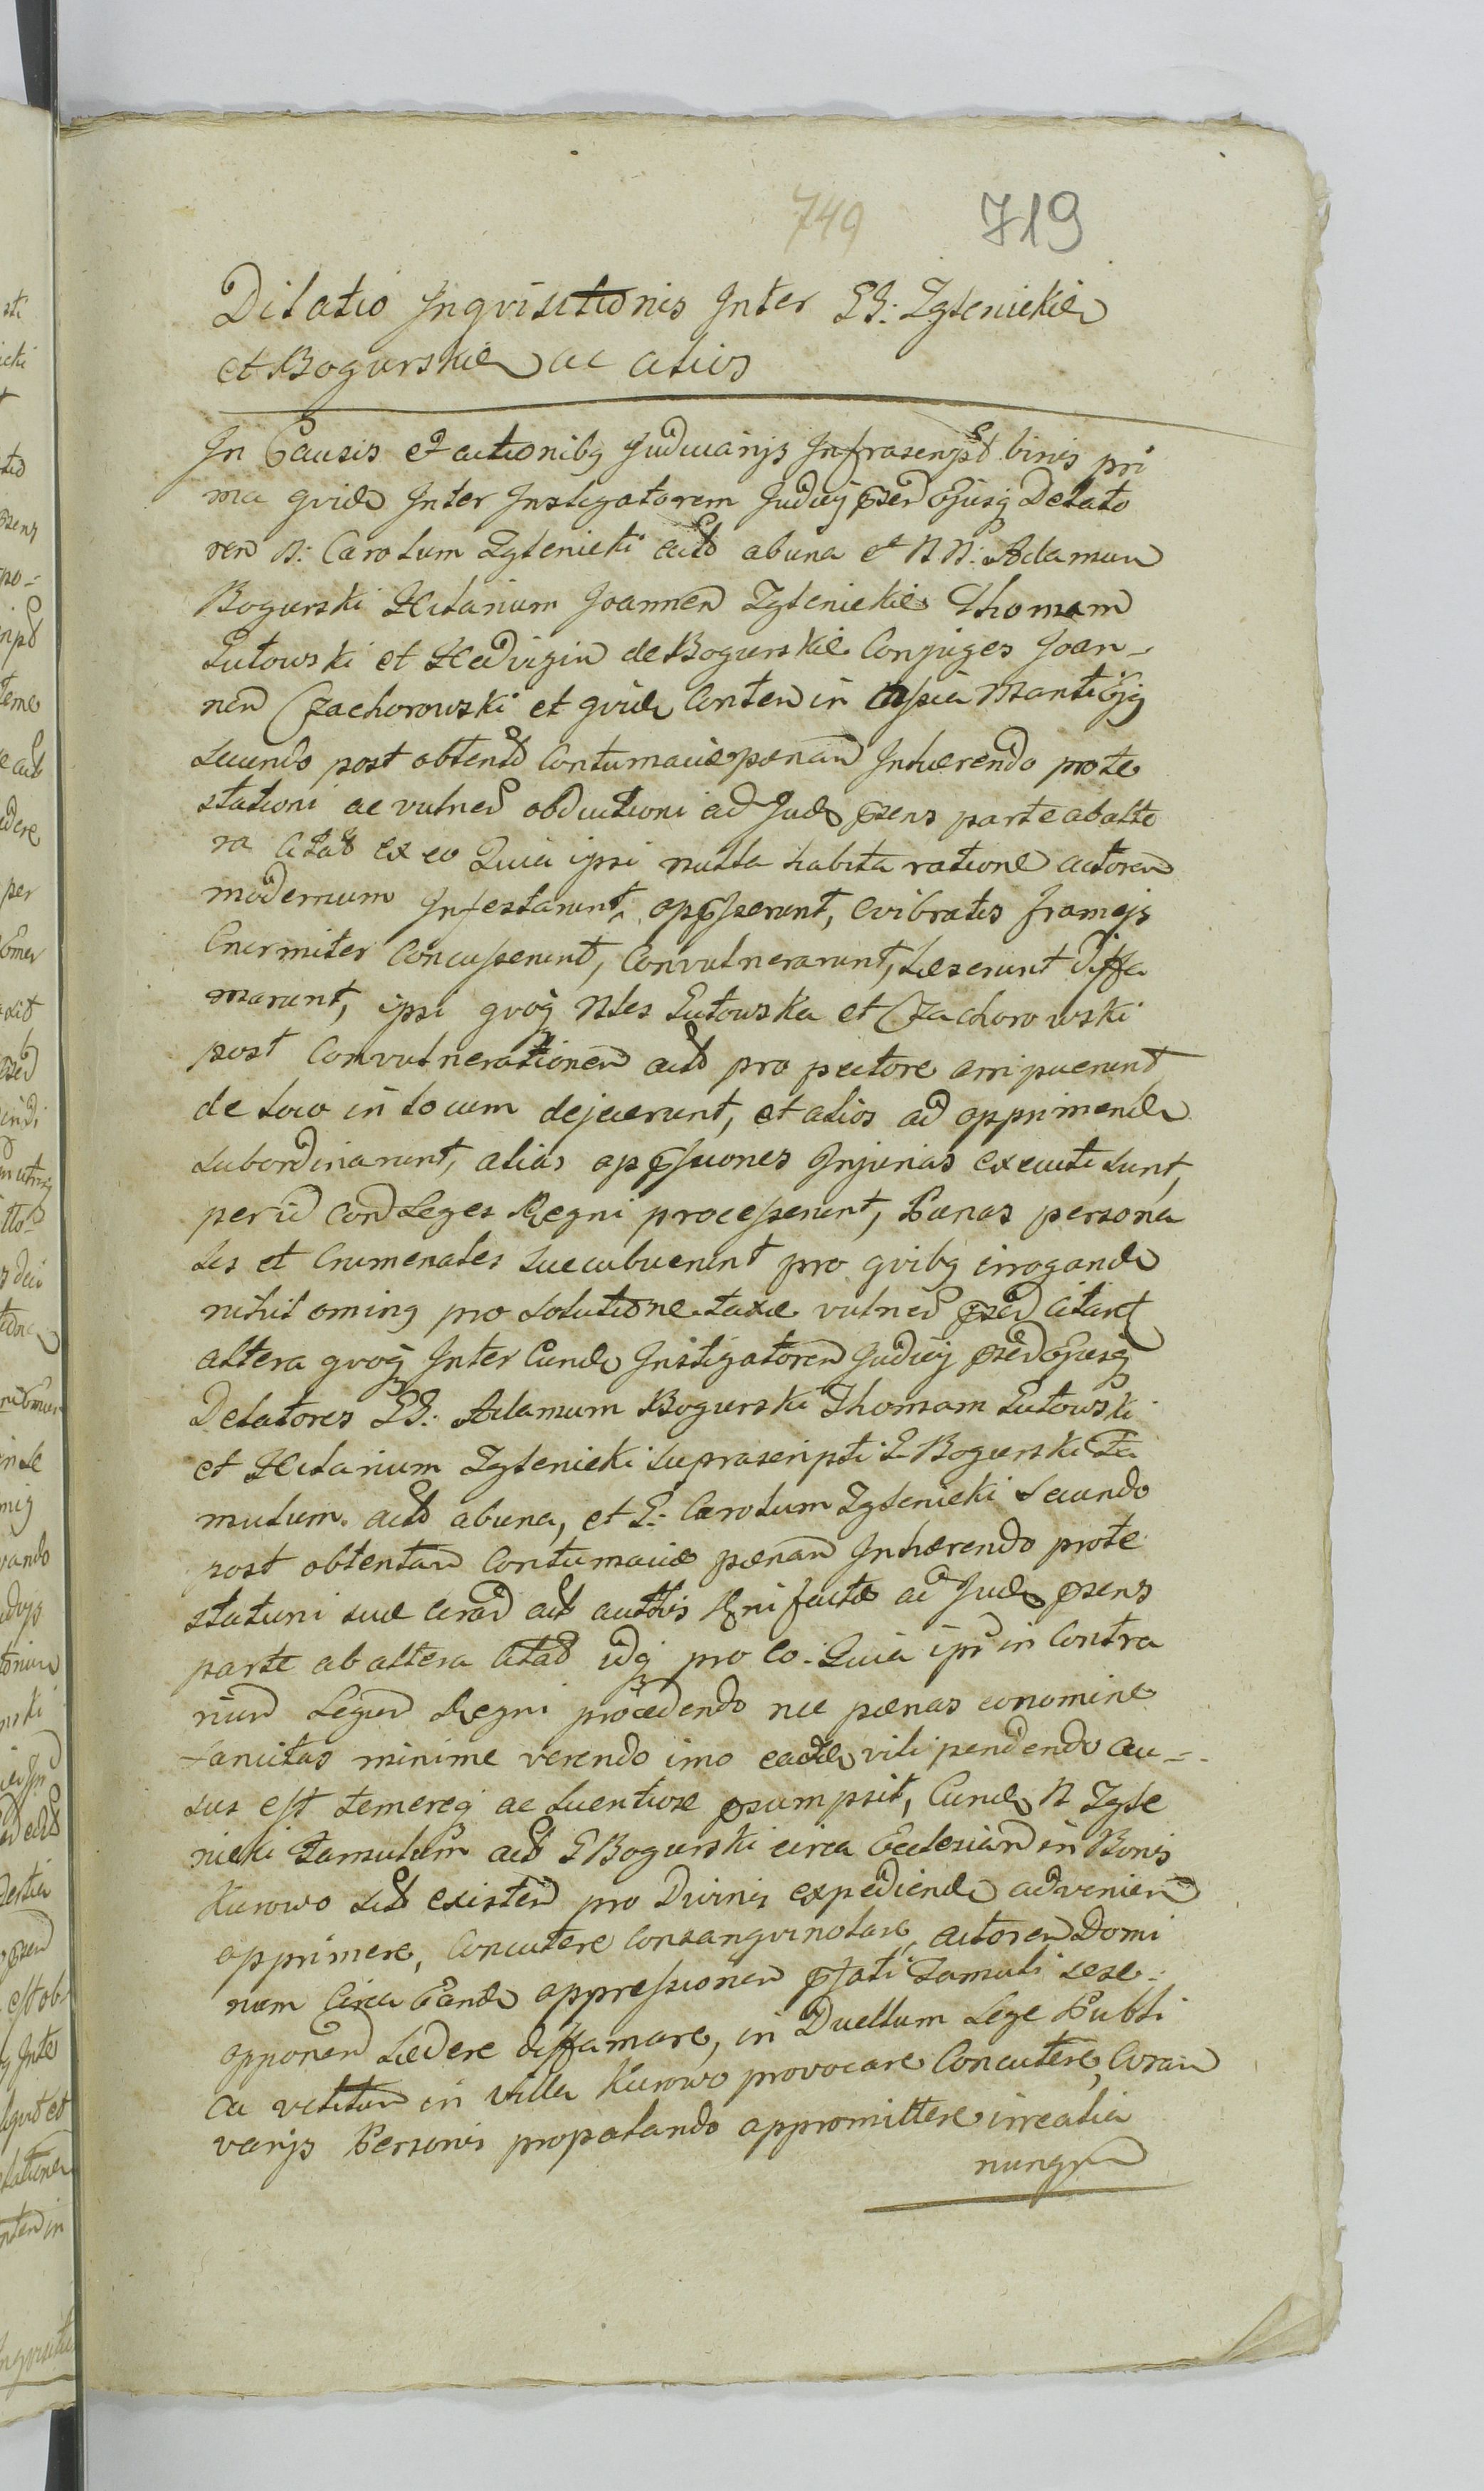 749 719
Dilatio Inqvisitionis Inter GG: Zglenickie
et Bogurskie ac alios
In Causis et actionibg Judiciarijs Infrascript binis pri
ma qvide Inter Instigatorem Judicij psen Ejusq Delato
rem N: Carolum Zglenicki act ab una et NN: Adamum
Bogurski Hilarium Joannem Zglenickie Thomam
Lutowski et Hedvigim de Bogurskie Conjuges Joan-
nem Czachorowski et qvide Conten in Copia
Secundo post obtent Contumacie pænam Inhærendo prote
stationi ac vulner obductioni ad Jud psens parte ab alte
ra Citat ex eo Quia ipsi nulla habita ratione actorem
modernum Infestarunt, opperunt, evibratis frameis
Enormiter Concusserunt, Convulnerarunt, Læserunt diffa
marunt, ipsi qvoq Nles Lutowska et Czachorowski
post Convulnerationem act pro pectore arripuerunt
de loco in locum dejecerunt, et alios ad opprimend
subordinarunt, alias oppssiones Injurias executi sunt,
per id con Leges Regni processerunt, Pænas persona
les et Crimenales succubuerunt pro qvibg irrogand
nihil oming pro solutione taxæ vulner psen Citant
altera qvoq Inter Eund Instigatorem Judicij psen Ejusq
Delatores GG: Adamum Bogurski Thomam Lutowski
et Hilarium Zglenicki suprascripti G Bogurski Fa
mulum act ab una, et G: Carolum Zglenicki Secundo
post obtentam Contumaciæ pænam Inhærendo prote
stationi suæ coram act authis Rni factæ ad Jud psens
parte ab altera Citat idq pro eo: Quia ips in Contra
rium Legum Regni procedendo nec pænas eo nomine
sancitas minime verendo imo easde vilipendendo au-
sus est temereq ac licentiose psumpsit, Eund N Zgle
nicki Famulum act G Bogurski circa Ecclesiam in Bonis
Kurowo sit existen pro Divinis expediend advenien
opprimere, Concutere Consangvinolare, actorem Domi
num Circa Eand oppressionem pfati Famuli sese
opponen Lædere diffamare, in Duellum Lege Publi
ca vetitum in villa Kurowo provocare Concutere, Coram
varijs Personis propalando appromittere irrealia
nunqvm